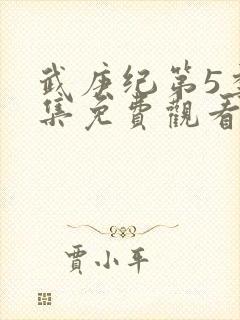 武庚纪第5季
集免費觀看
賈小平